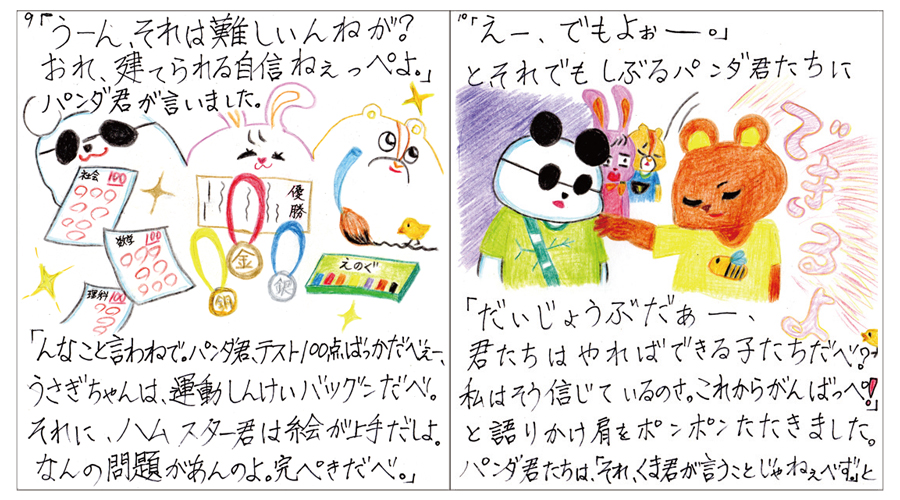 9
「うーん、それは難しいんねが?
おれ、建てられる自信ねぇっぺよ。」
パンダ君が言いました。
社会 100
数学 100
理科 100
優勝
金
銅
銀
えのぐ
「んなこと言わねで。パンダ君、テスト100点ばっかだべぇー、
うさぎちゃんは、運動しんけいバツグンだべ。
それに、ハムスター君は絵が上手だしよ。
なんの問題があんのよ。完ぺきだべ。」
10
「えー、でもよぉー。」
とそれでもしぶるパンダ君たちに
できるよ
「だぃじょうぶだぁー、
君たちはやればできる子たちだべ?
私はそう信じているのさ。これからがんばっぺ!」
と語りかけ肩をポンポンたたきました。
パンダ君たちは、「それ、くま君が言うことじゃねぇべず。」と